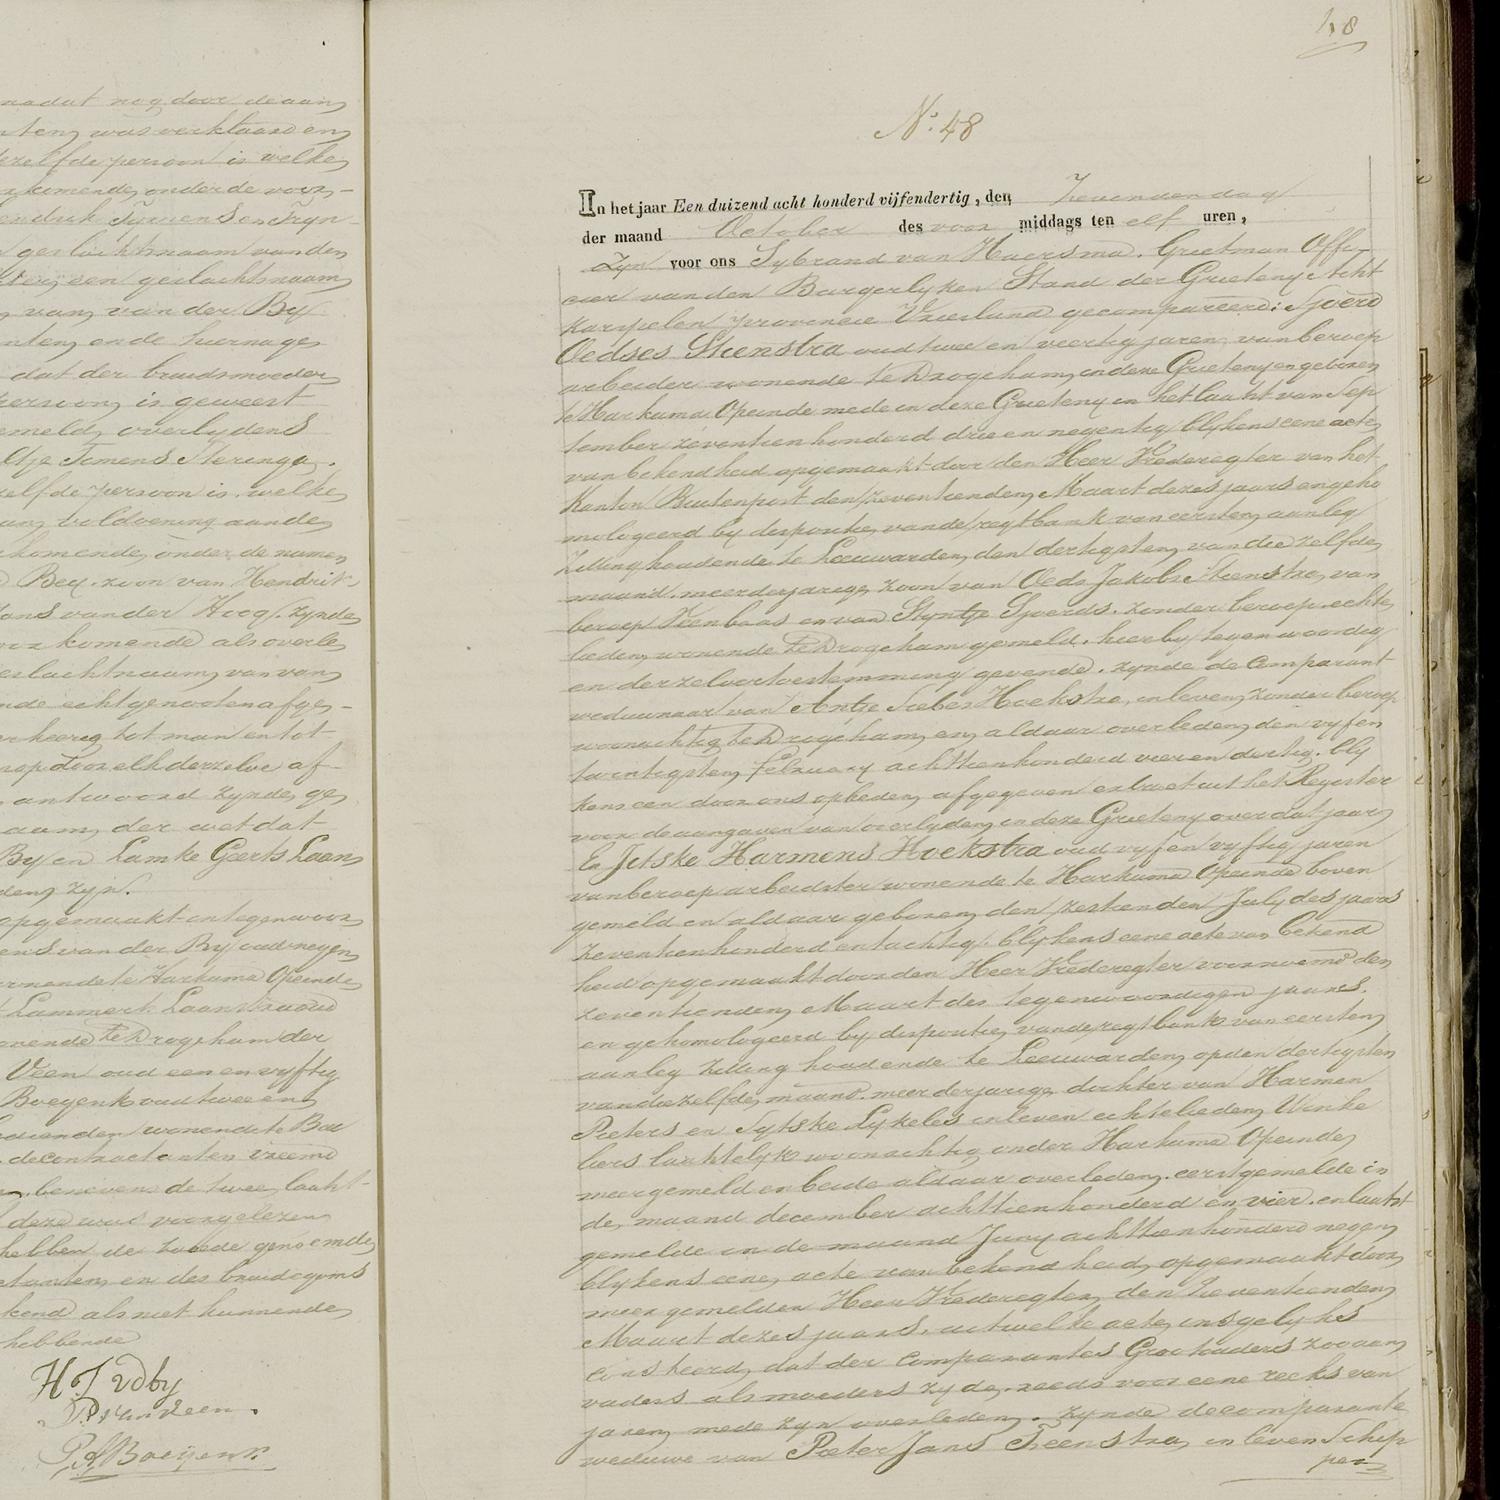 nadat nog door de aan
nten, was verklaard en
dezelfde persoon is welke
komende, onder de voor-
Hendrik Symens en Tryn-
geslachtsnaam van den
een geslachtsnaam
van, van der By
nten, en de hierna ge
dat der bruidsmoeder
persoon, is geweest
gemeld, overlydens
Atje Temens Sterenga.
zelfde persoon is welke
voldoening aan de
komende, onder de namen
Bey. zoon van Hendrik
Jans van der Hoog, zynde
voorkomende als overle
geslachtnaam, van van
nde echtgenooten afge-
over heereg tot man en tot
hierop door elk derzelve af-
antwoord zynde, ge
naam, der wet dat
By en Lamke Geerts Laan
den, zyn.
opgemaakt in tegenwoor
ens van der By oud negen
wonende te Harkema Opeinde
Lammert Laanstra oud
wonende te Drogeham der
Veen oud een en vyftig
Boeyenk oud twee en
bedienden wonende te Bui
de contractanten vreemd
benevens de twee laatst-
deze was voorgelezen
hebben de tweede genoemde
ctanten, en des bruidegoms
kend als niet kunnende
hebbende
H T vdby
P van Veen.
Boeijenk.
48
N.° 48
In het jaar Een duizend acht honderd vijfendertig, den Zevenden dag
der maand October des voor middags ten elf uren,
Zyn voor ons Sybrand van Haersma. Grietman Offi-
cier van den Burgerlyken Stand der Grieteny Acht
karspelen provincie Vriesland gecompareerd: Sjoerd
Oedses Steenstra oud twee en veertig jaren, van beroep
arbeider wonende te Drogeham, in deze Grieteny en geboren
te Harkema Opeinde mede in deze Grieteny in het laatst van Sep
tember zeventien honderd drie en negentig blykens eene acte
van bekendheid opgemaakt door den Heer Vrederegter van het
Kanton Buitenpost den zeventienden, Maart dezes jaars en geho
mologeerd by dispositie, van de regtbank van eersten, aanleg
zitting houdende te Leeuwarden, den dertigsten, van die zelfde
maand. meerderjarige zoon van Oeds Jakobs Steenstra, van
beroep Veenbaas en van Styntje Sjoerds. zonder beroep. echte
lieden, wonende te Drogeham gemeld. hierby tegenwoordig
en derzelver toestemming gevende. zynde de comparant
weduwnaar van Antje Siebes Hoekstra, in leven, zonder beroep
woonachtig te Drogeham, en, aldaar overleden, den vyfen
twintigsten, february achttienhonderd vier en dertig. bly
kens een door ons opheden, afgegeven extract uit het Register
voor de aangaven van overlyden, in deze Grieteny over dat jaar,
En Jitske Harmens Hoekstra oud vyf en vyftig jaren
van beroep arbeidster wonende te Harkema Opeinde boven
gemeld en aldaar geboren, den zestienden July des jaars
zeventienhonderd en tachtig. blykens eene acte van bekend
heid opgemaakt door den Heer Vrederegter voornoemd den
zeventienden, Maart des tegenwoordigen jaars.
en gehomologeerd by dispositie, van de regtbank van eersten,
aanleg zitting houdende te Leeuwarden, op den dertigsten
van die zelfde, maand. meerderjarige dochter van Harmen
Pieters en Sytske Lykeles in leven echtelieden, Winke
liers laatstelyk woonachtig onder Harkema Opeinde,
meergemeld en beide aldaar overleden. eerstgemelde in
de, maand december achttienhonderd en vier. en laatst
gemelde in de maand Juny achttienhonderd negen,
blykens eene, acte van bekendheid, opgemaakt door
meergemelden Heer Vrederegter, den Zeventienden,
Maart dezes jaars. uit welke acte, insgelyks
consteerd, dat der Comparantes Grootouders zoo van
vaders als moeders zyde. reeds voor eene reeks van
jaren, mede zyn overleden. zynde de comparante
weduwe van Pieter Jans Feenstra, in leven Schip
per